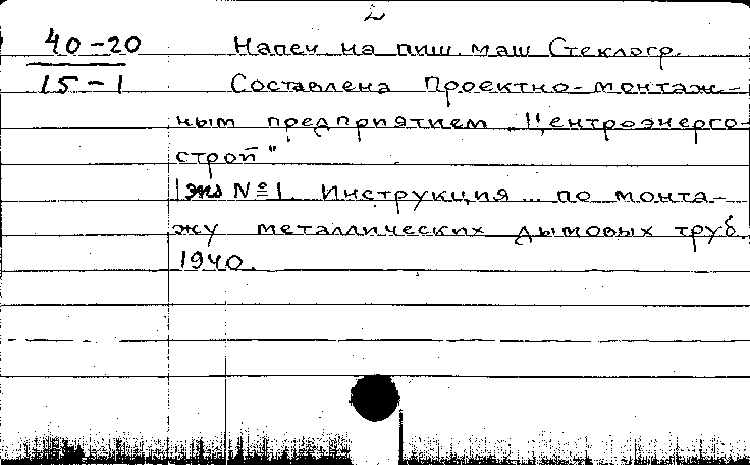 2
40-20 Напеч на пиш. маш Стеклогр.
15-1 Составлена Проектно-монтаж-
ным предприятием „Центроэнерго-
строй"
1 экз №1. Инструкция ... по монта-
жу металлических дымовых труб.
1940.